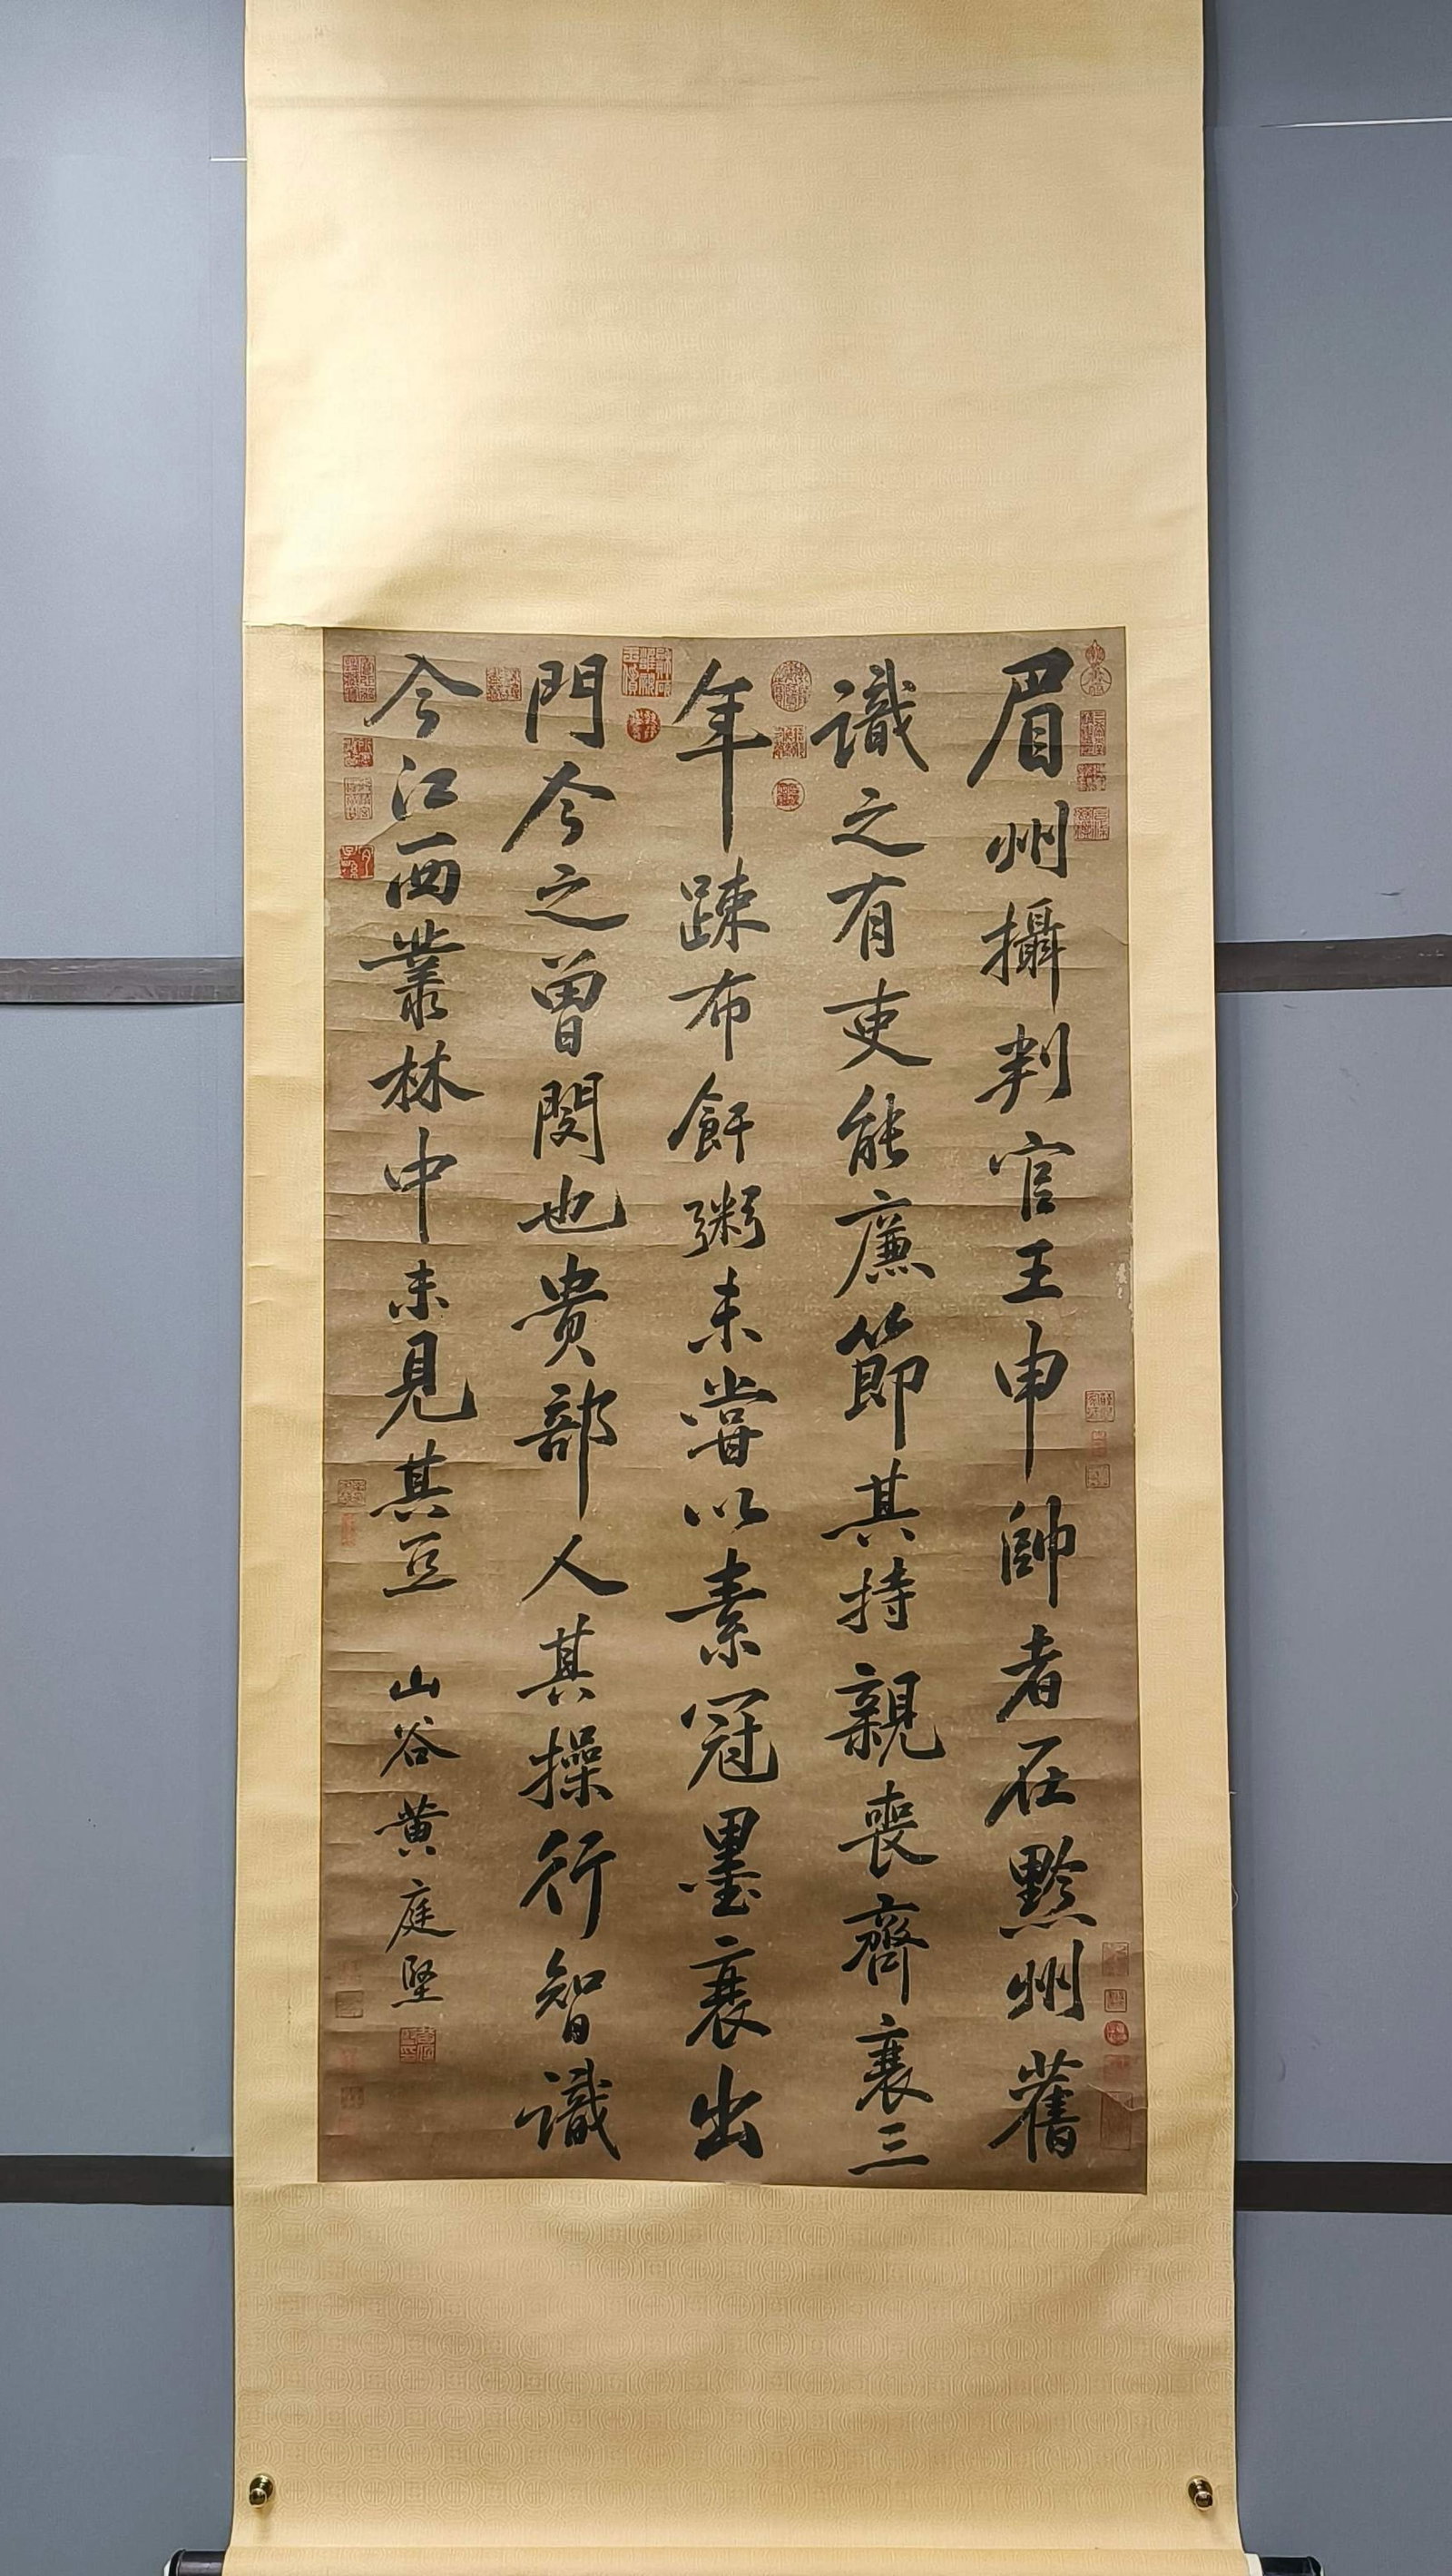 眉州攝判官王申帥者在黔州舊
識之有吏能廉節其持親喪齊衰三
年疎布飦粥未嘗以素冠墨衰出
門今之曾閔也貴部人其操行智識
今江西叢林中未見其亞
山谷黄庭堅